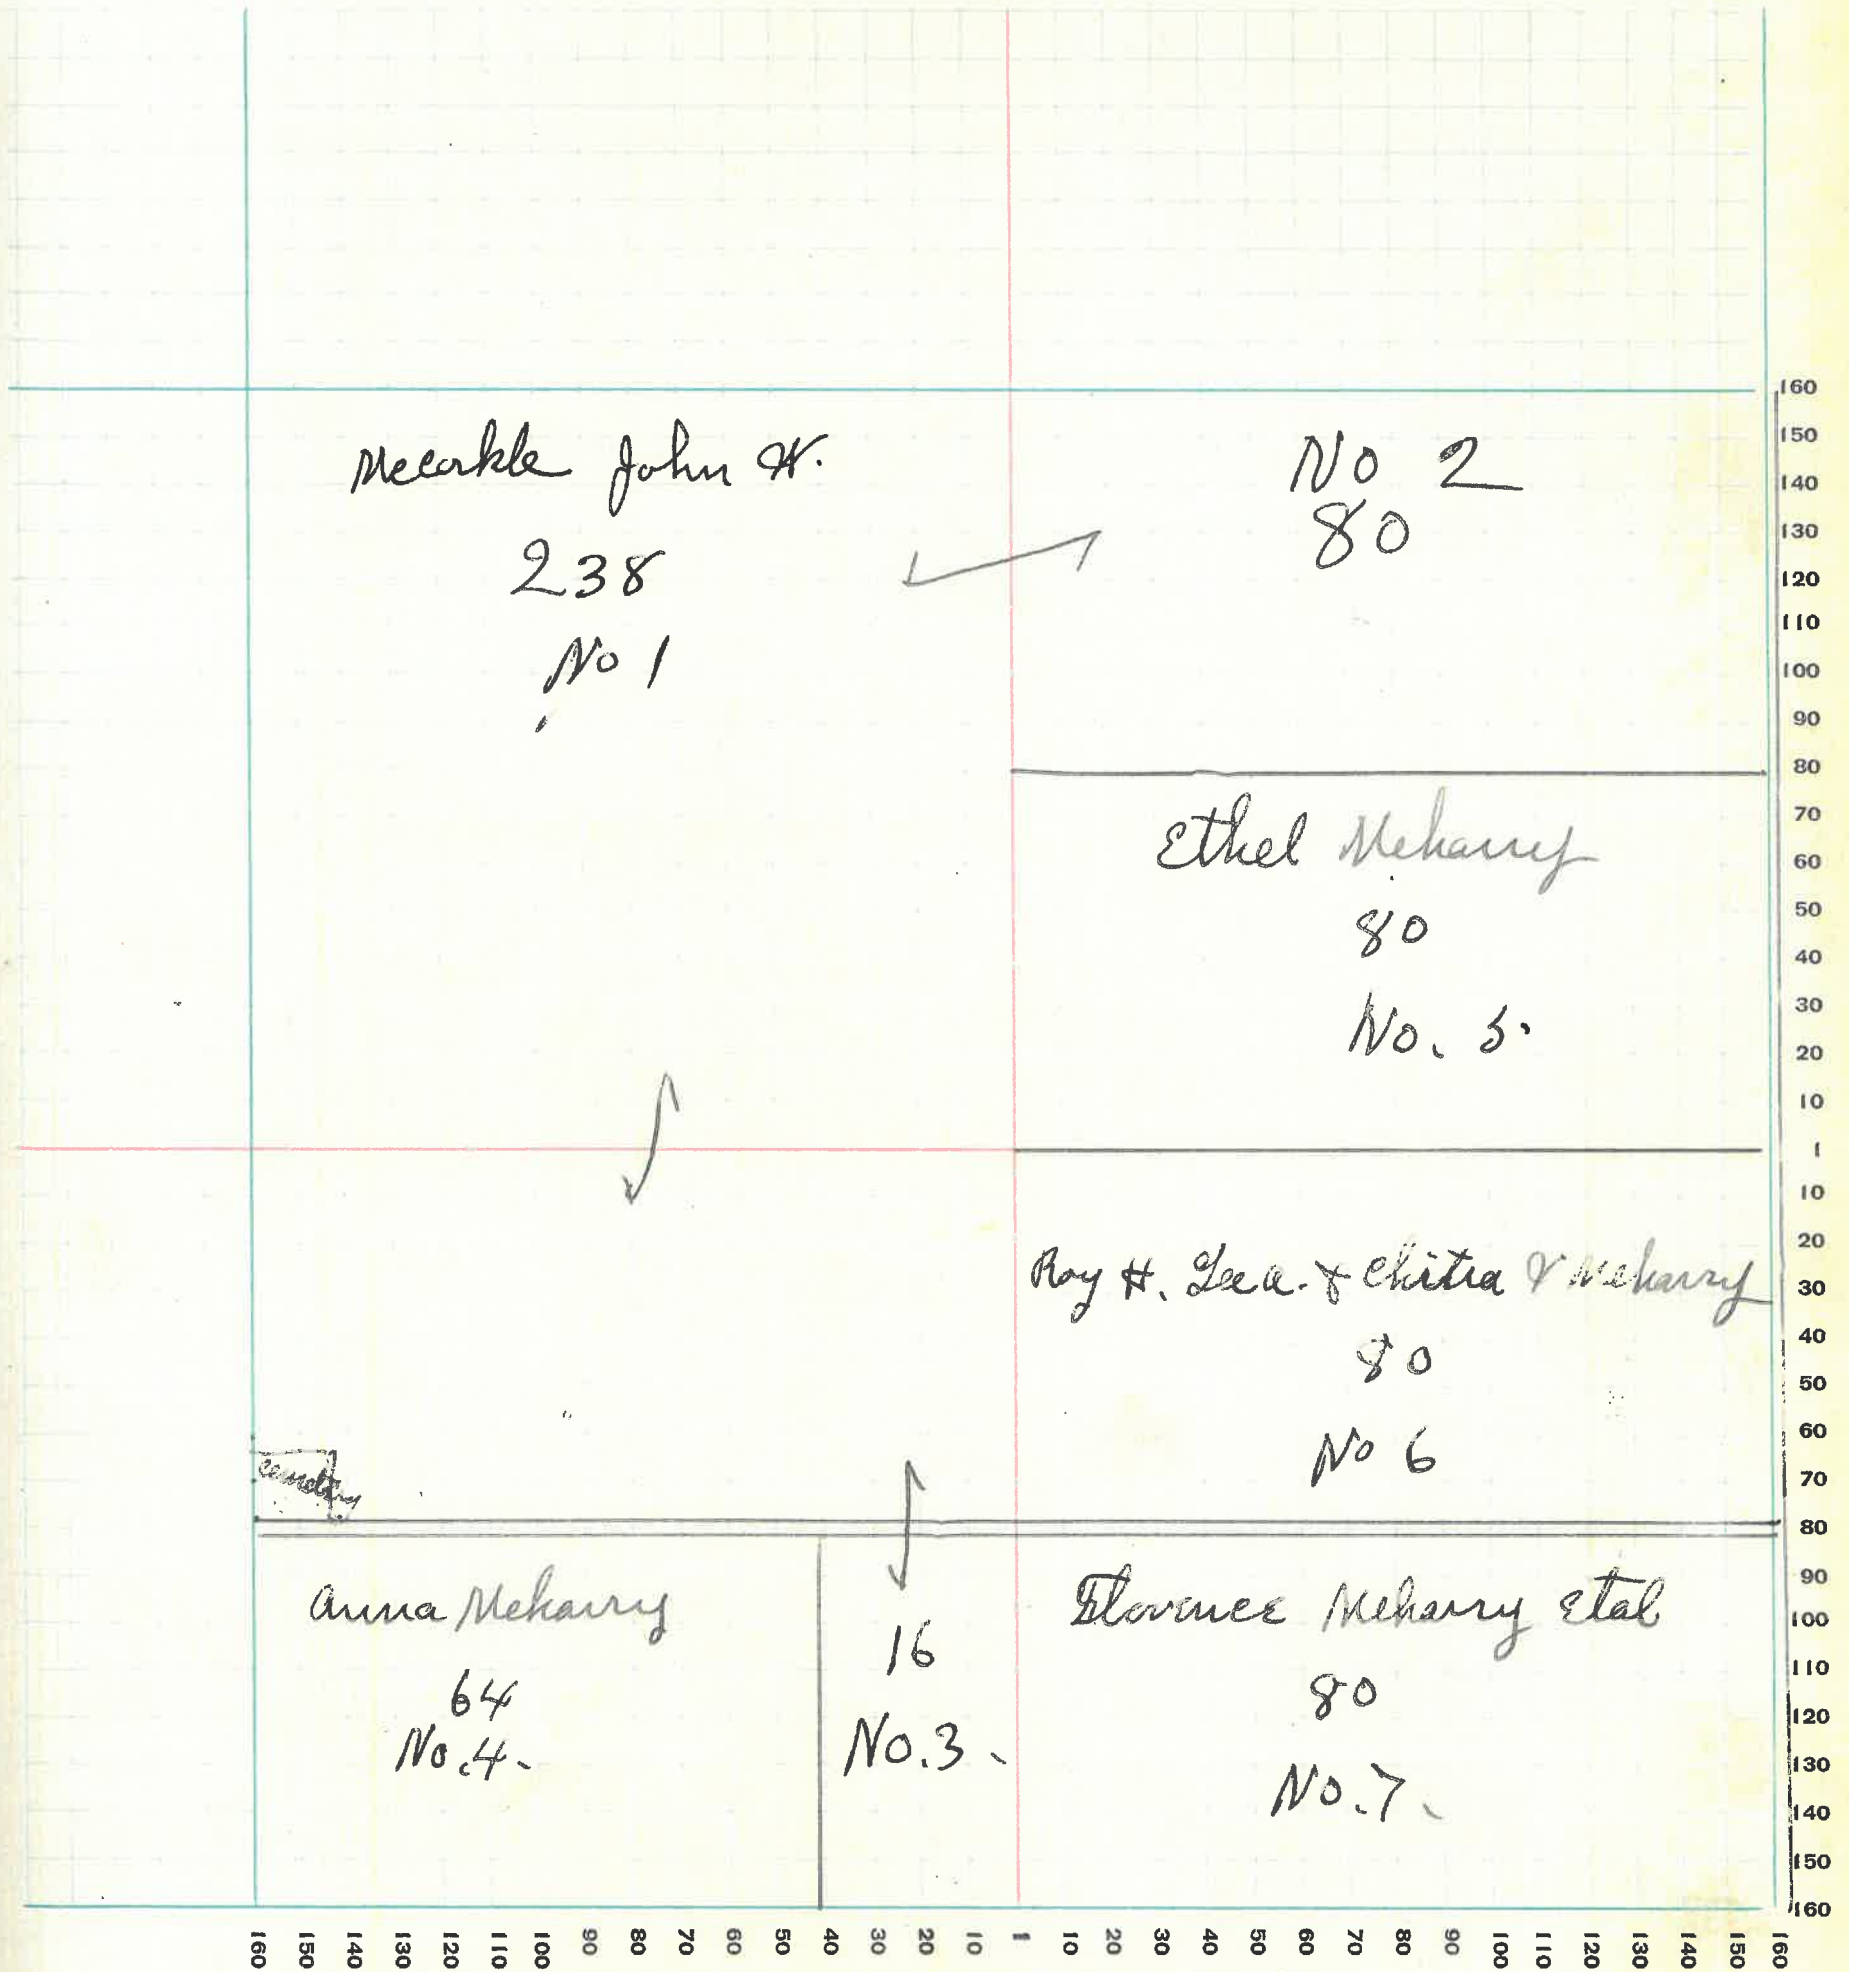 McCorkle John W.
238
No 1
No 2
80
Ethel Meharry
80
No. 5.
Roy H. Lee A. & Chitra & Meharry
80
No 6
cemetery
Anna Meharry
64
No. 4.
16
No. 3.
Florence Meharry Etal
80
No. 7.
160
150
140
130
120
110
100
90
80
70
60
50
40
30
20
10
1
10
20
30
40
50
60
70
80
90
100
110
120
130
140
150
160
160 150 140 130 120 110 100 90 80 70 60 50 40 30 20 10 1 10 20 30 40 50 60 70 80 90 100 110 120 130 140 150 160